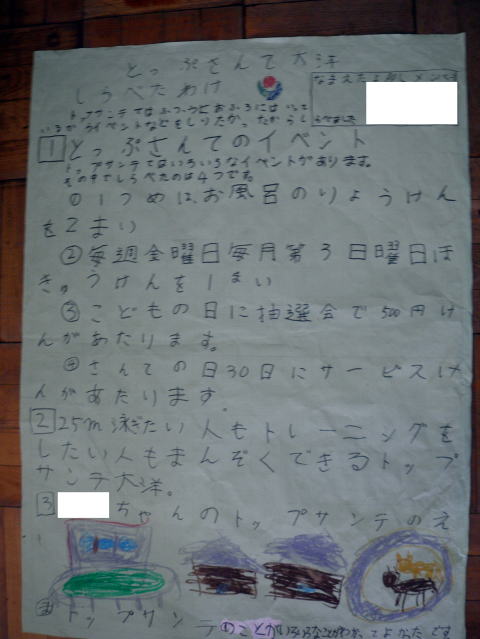 とっぷさんて大洋
しらべたわけ
トップサンテではふつうどおふろにはいって
いるがイベントなどをしりたかったからしらべました
1 とっぷさんてのイベント
トップサンテではいろいろなイベントがあります。
その中でしらべたのは4つです。
①1つめは、お風呂のりょうけん
を2まい
②毎週金曜日毎月第3日曜日は
きゅうけんを1まい
③こどもの日に抽選会で500円け
んがあたります。
④さんての日30日にサービスけ
んがあたります。
2 25m泳ぎたい人もトレーニングを
したい人もまんぞくできるトップ
サンテ大洋。
3 ちゃんのトップサンテのえ
トップサンテのことがいろいろなことがわかってよかったです